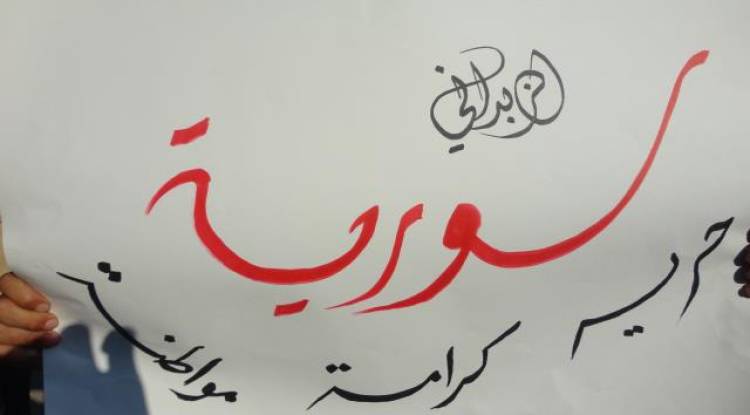 الزبداني
سورية
حرية كرامة مواطنة